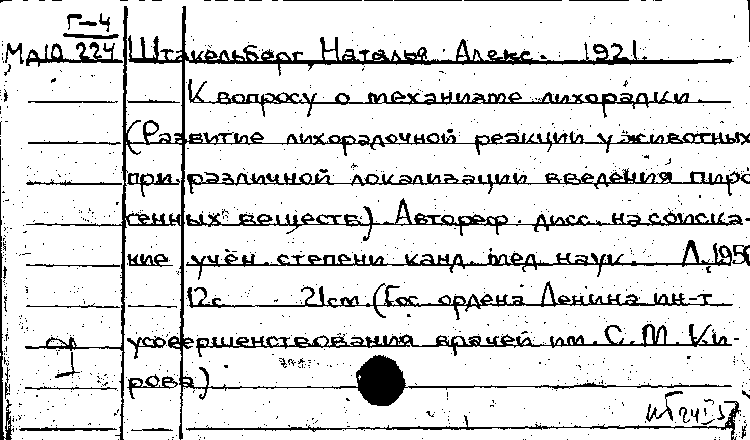 Г-4
МД10 224 Штакельберг, Наталья Алекс. 1921.
К вопросу о механизме лихорадки.
(Развитие лихорадочной реакции у животных
при различной локализации введения пиро
генных веществ). Автореф. дисс. на соиска-
ние учён. степени канд. мед. наук. Л., 1956
12с 21см. (Гос. ордена Ленина ин-т
усовершенствования врачей им. С. М. Ки-
рова)